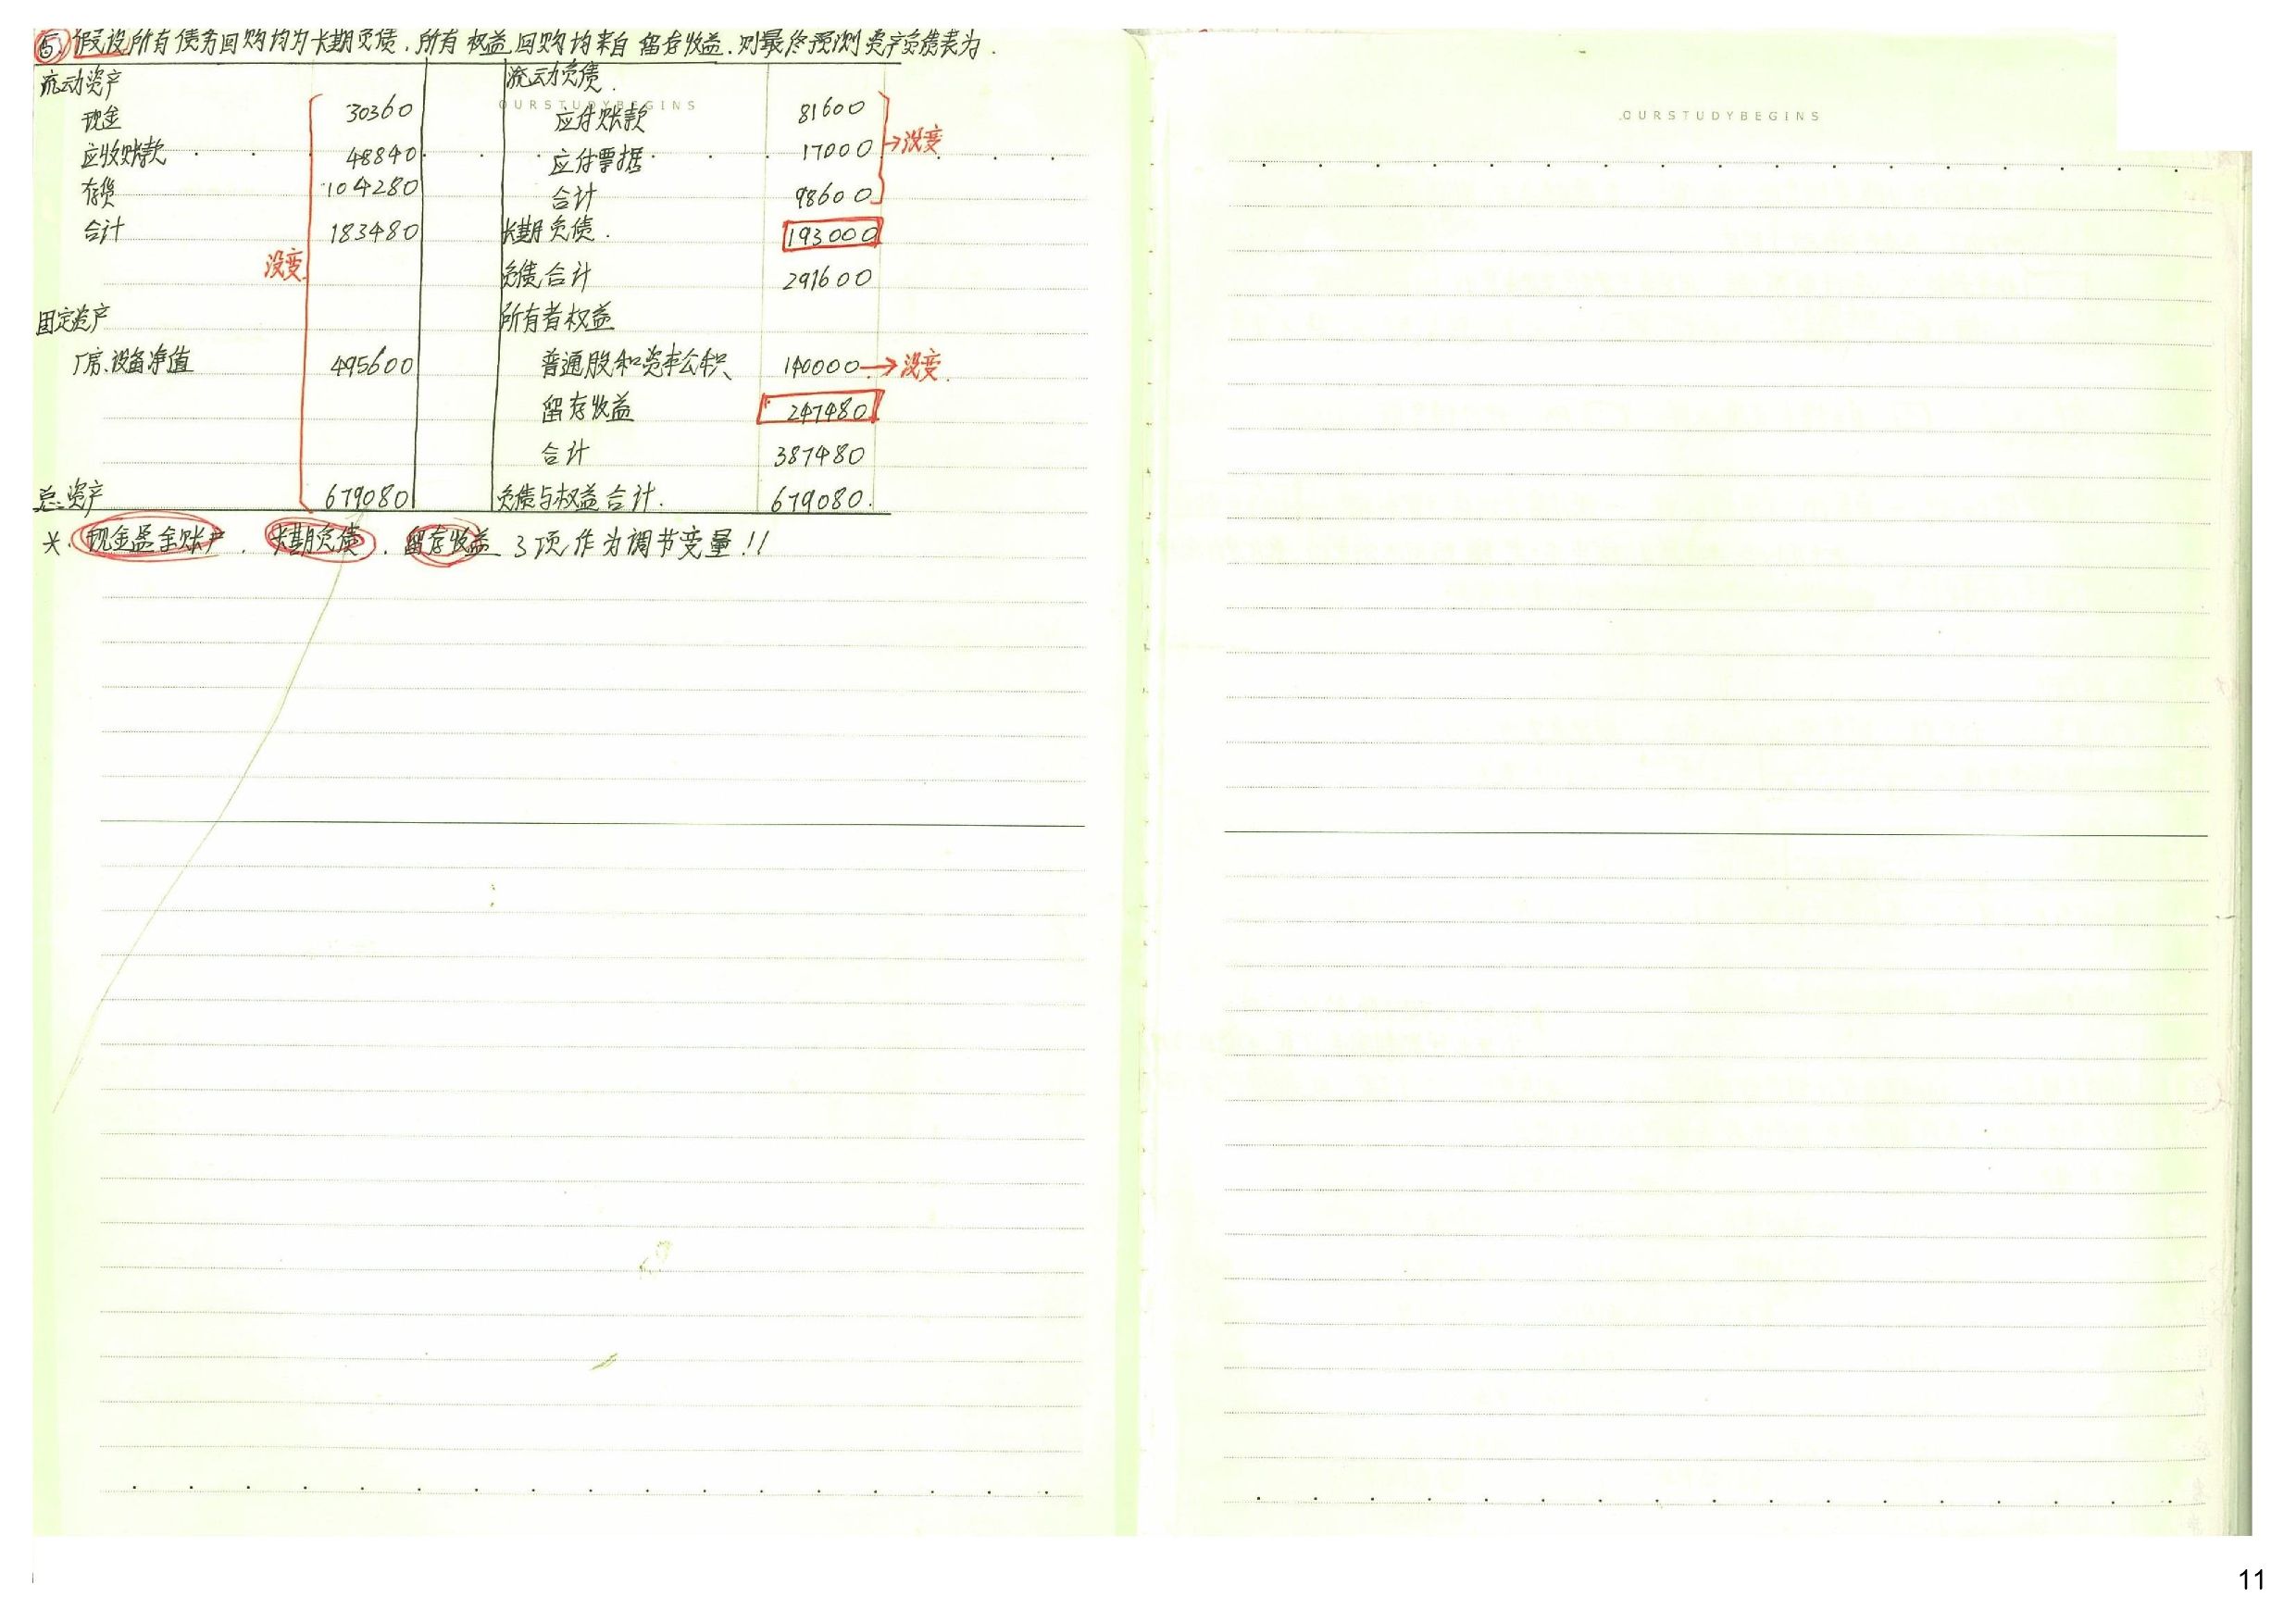 ⑤ 假设所有债务回购均为长期负债，所有权益回购均来自留存收益，则最终预测资产负债表为.
流动资产 流动负债.
OURSTUDYBEGINS
现金 30360 应付账款 81600
应收账款 48840 应付票据 17000 →没变
存货 104280 合计 98600
合计 183480 长期负债. 193000
没变 负债合计 291600
固定资产 所有者权益
厂房、设备净值 495600 普通股和资本公积 140000 →没变.
留存收益 247480
合计 387480
总资产 679080 负债与权益合计. 679080.
*. 现金盈余账户、长期负债、留存收益 3项作为调节变量!!
OURSTUDYBEGINS
11